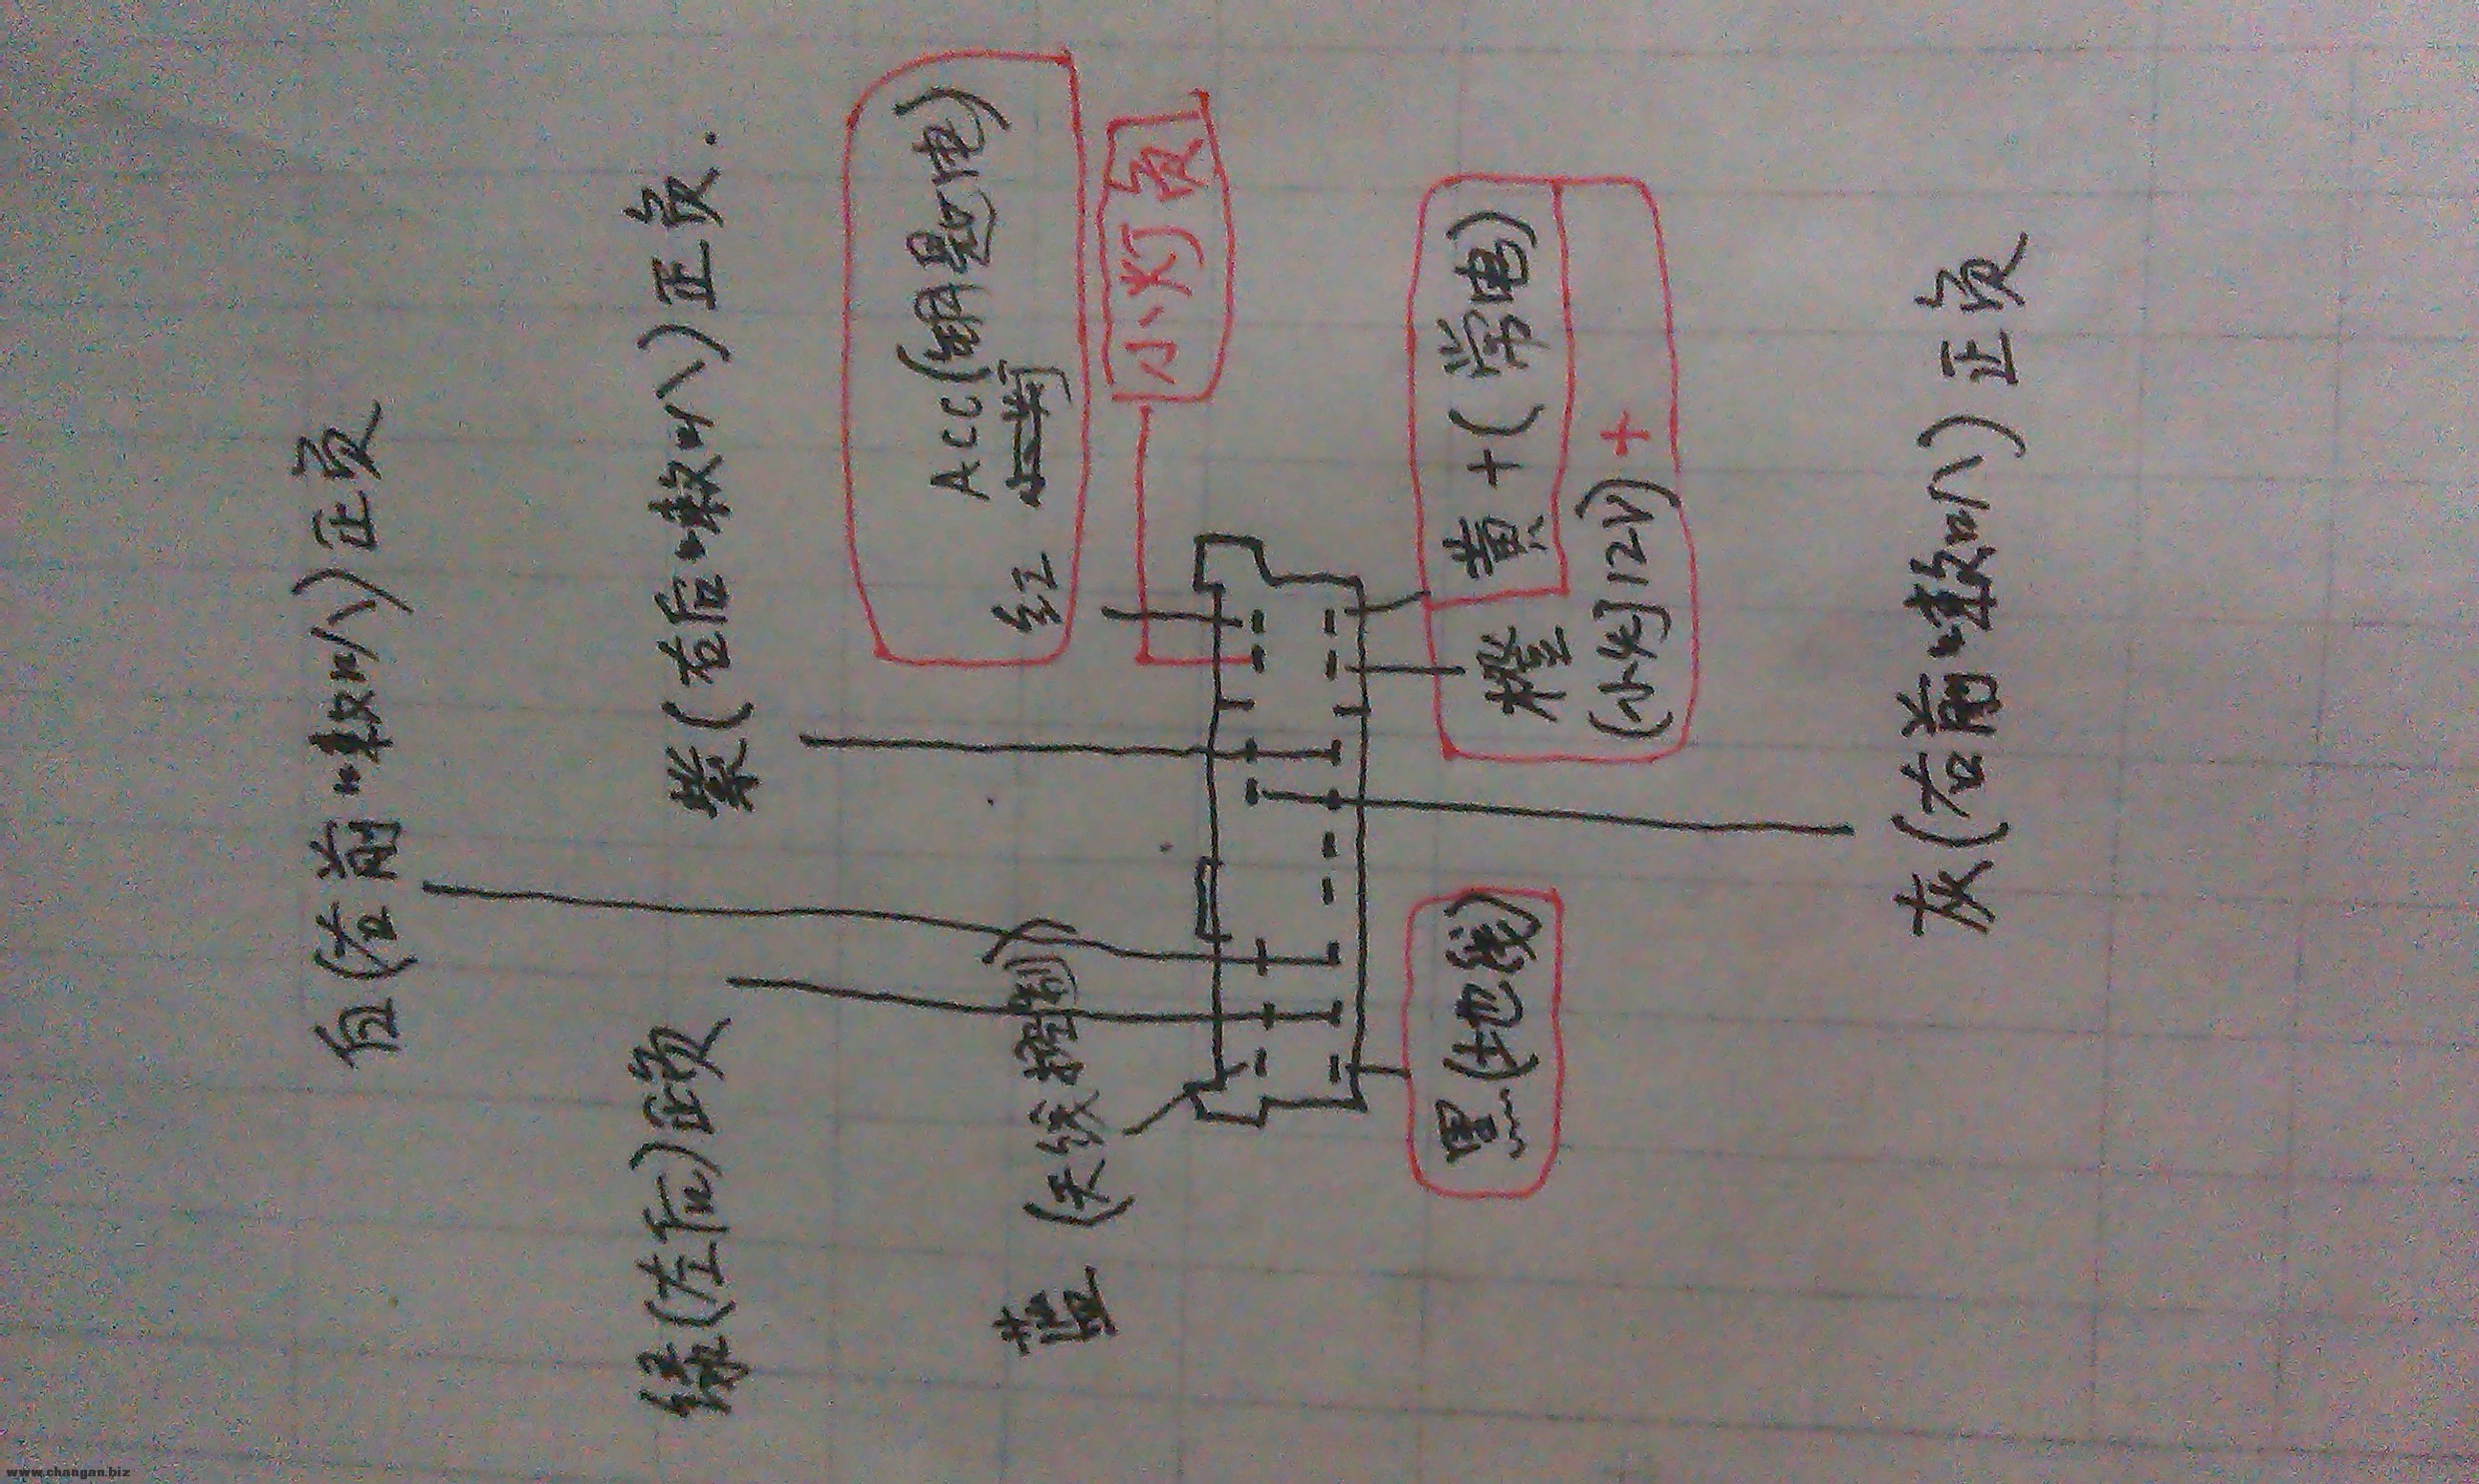 白(右前喇叭)正负
绿(左后)正负
紫(右后喇叭)正负.
蓝(天线控制)
红 ACC(钥匙电)
小灯负
黑(地线)
黄+(常电)
橙(小灯12V)+
灰(右前喇叭)正负
www.changan.biz